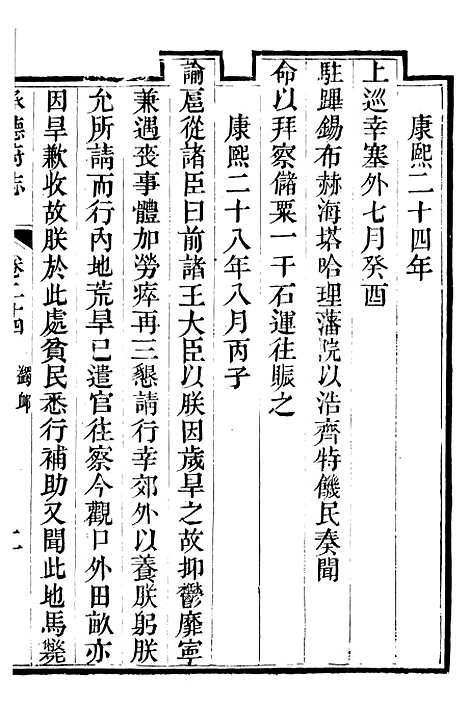 康熙二十四年
上巡幸塞外七月癸酉
駐蹕錫布赫海塔哈理藩院以浩齊特饑民奏聞
命以拜察儲粟一千石運往賑之
康熙二十八年八月丙子
諭扈從諸臣曰前諸王大臣以朕因歲旱之故抑鬱靡寧
兼遇喪事體加勞瘁再三懇請行幸郊外以養朕躬朕
允所請而行內地荒旱已遣官往察今觀口外田畝亦
因旱歉收故朕於此處貧民悉行補助又聞此地馬斃
承德府志
卷二十四
蠲卹
二